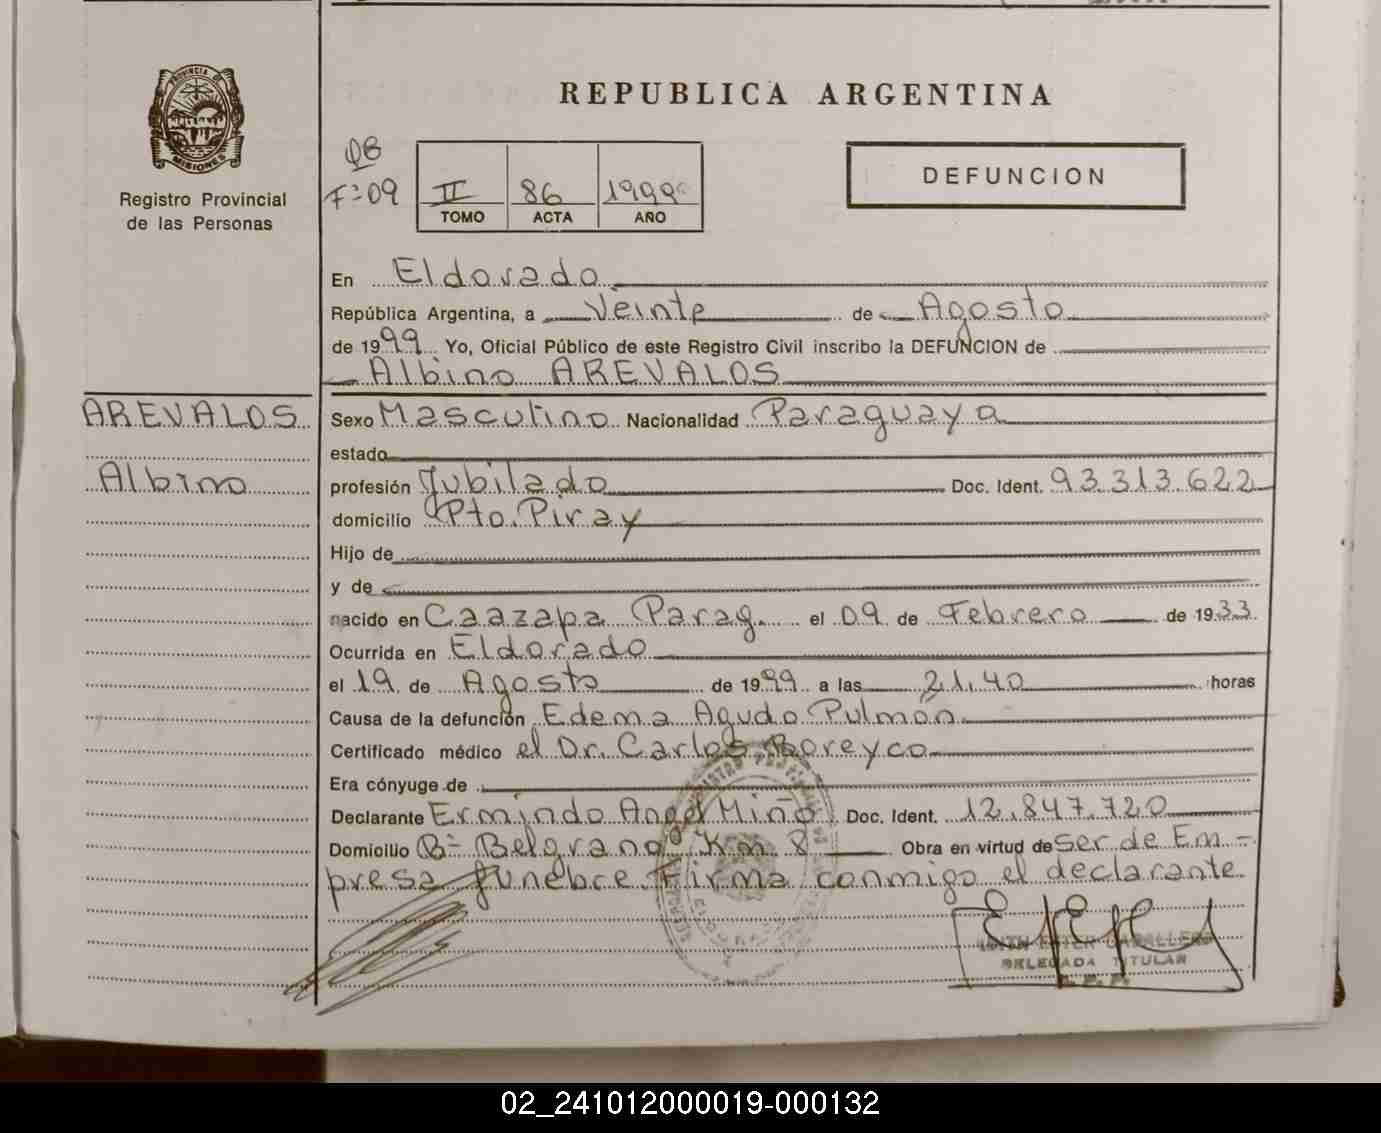 PROVINCIA DE
MISIONES
Registro Provincial
de las Personas
REPUBLICA ARGENTINA
DEFUNCION
F: 09
II 86 1999
TOMO ACTA AÑO
En Eldorado
República Argentina, a Veinte de Agosto
de 1999 Yo, Oficial Público de este Registro Civil inscribo la DEFUNCION de
Albino AREVALOS
AREVALOS
Albino
Sexo Masculino Nacionalidad Paraguaya
estado
profesión Jubilado Doc. Ident. 93.313.622
domicilio Pto. Piray
Hijo de
y de
nacido en Caazapa Parag. el 09 de Febrero de 1933
Ocurrida en Eldorado
el 19 de Agosto de 1999 a las 21,40 horas
Causa de la defunción Edema Agudo Pulmón
Certificado médico el Dr. Carlos Boreyco
Era cónyuge de
Declarante Ermindo Angel Miño Doc. Ident. 12.847.720
Domicilio Bº Belgrano Km 8 Obra en virtud de ser de Em-
presa funebre. Firma conmigo el declarante
EDITH ESTER CABALLERO
DELEGADA TITULAR
R. P. P.
02_241012000019-000132